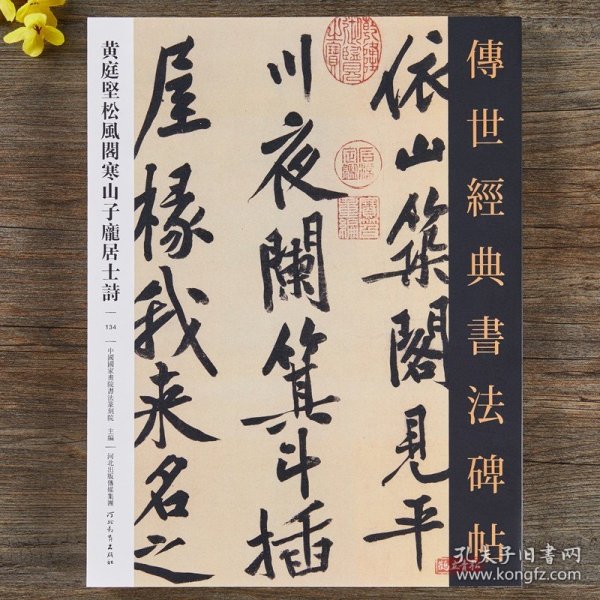 傳世經典書法碑帖
依山築閣見平
川夜闌箕斗插
屋椽我来名之
黄庭堅松風閣寒山子龐居士詩
134
中國國家畫院書法篆刻院 主編
河北出版傳媒集團
河北教育出版社
孔夫子旧書网
www.kongfz.com